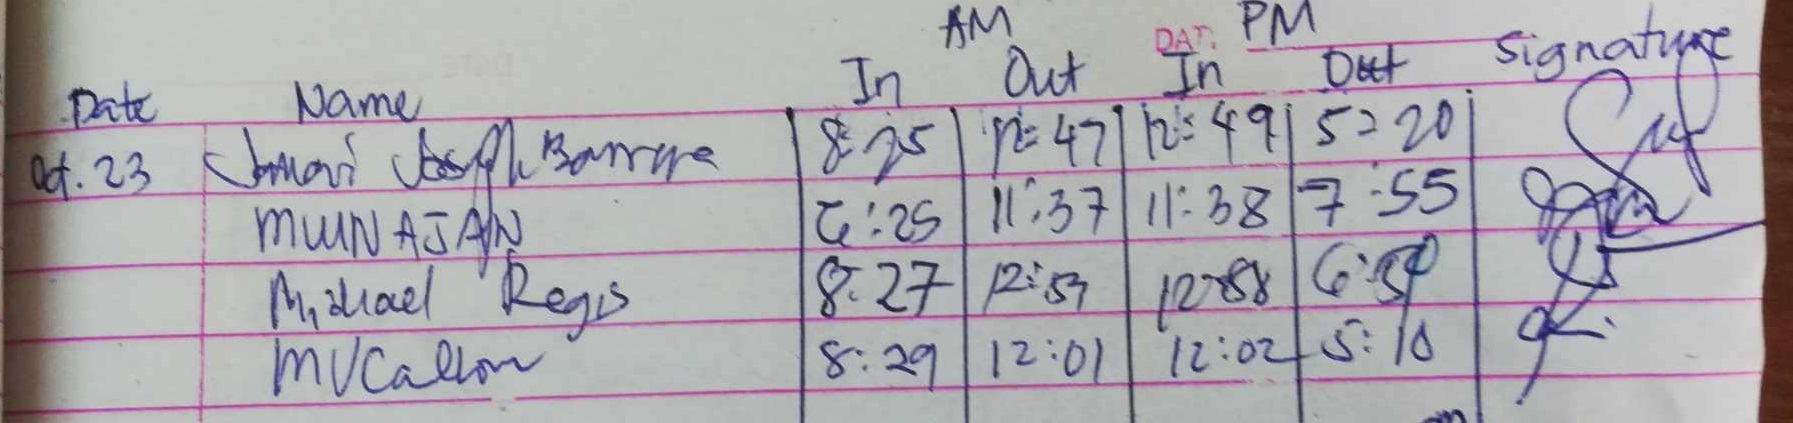 AM DAT. PM
Date Name In Out In Out Signature
Oct. 23 Jomari Joseph Barrera 8:25 12:47 12:49 5:20
MWNAJAN 6:25 11:37 11:38 7:55
Michael Regis 8:27 12:57 12:58 6:50
MVCallow 8:29 12:01 12:02 5:10